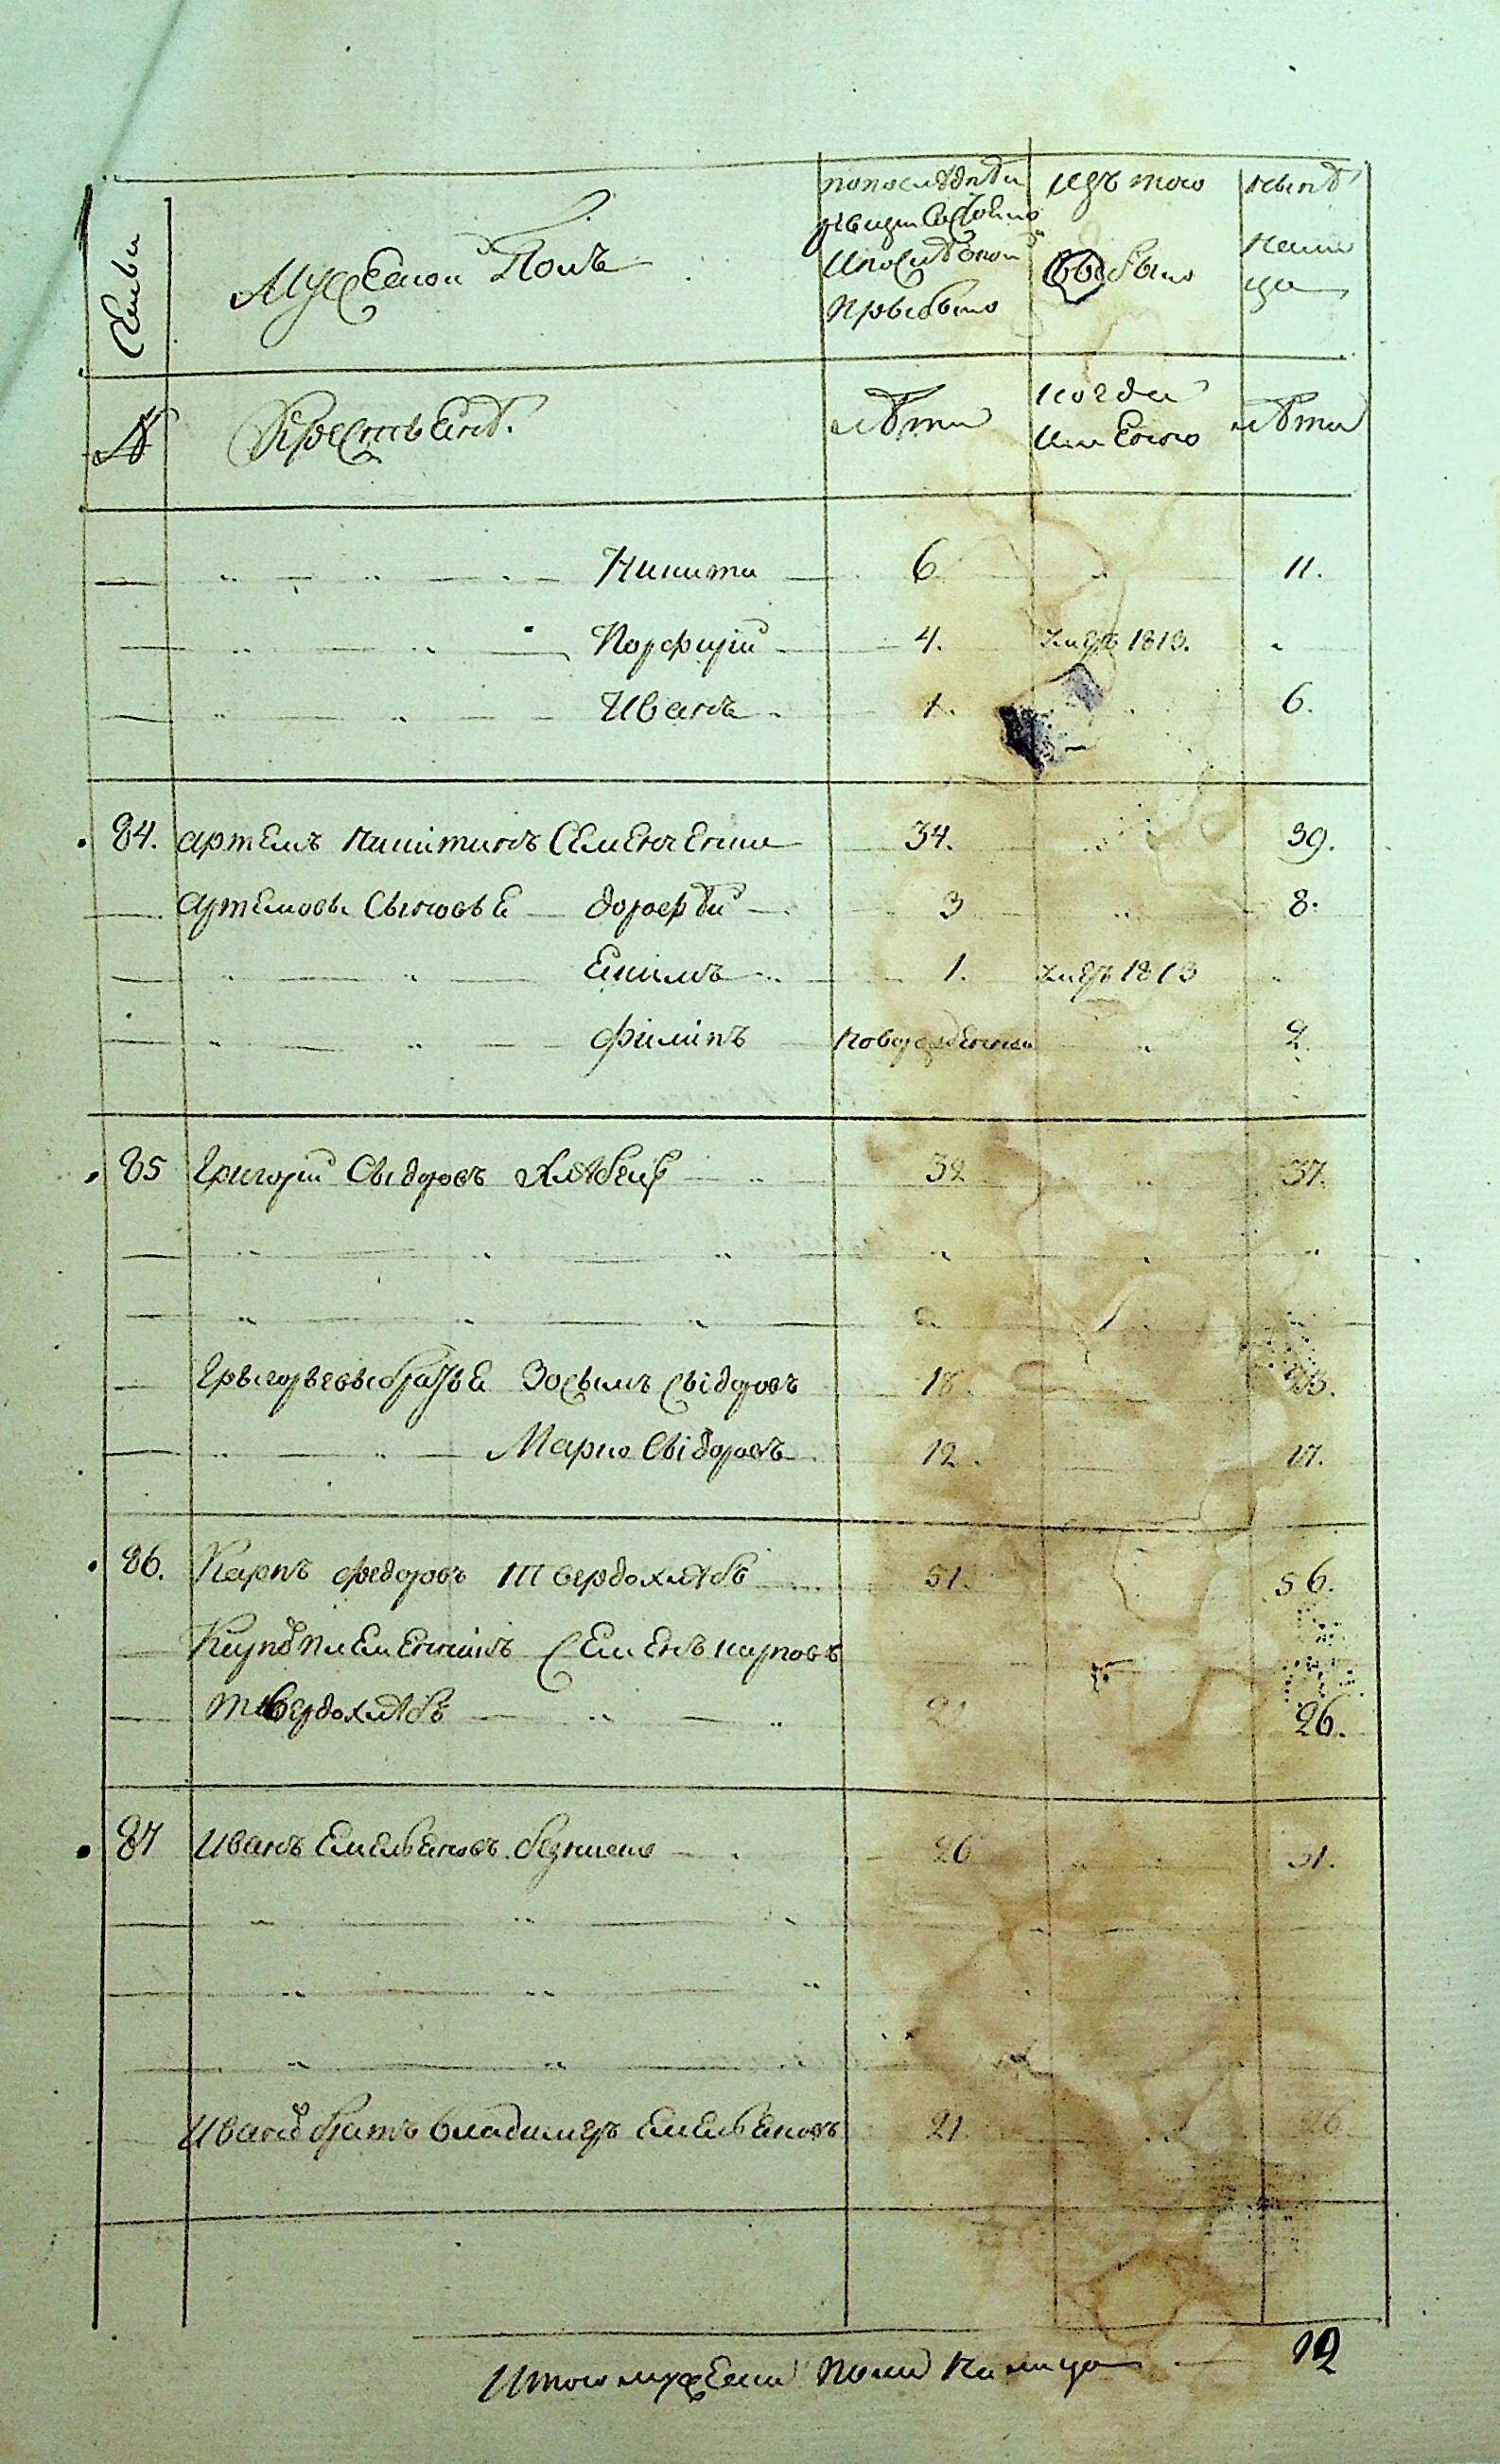 Семьи
Мужеской Полъ
попоследней ревизіи состояло и после оной прибыло
изъ того выбыло
ныне налицо
№
Крестьяне.
лета
когда именно
лета
Никита 6 11.
Порфирій 4. умеръ 1813.
Иванъ 1. 6.
84. артемъ никитинъ Семенченко 34. 39.
артемовы Сыновья дорофей 3 8.
Екимъ 1. умеръ 1813
філіпъ новорожденный 2.
85 Григорій Сыдоровъ Хлебец 32 37.
Грыгорьевы братья Зосымъ Сыдоровъ 18 23.
Марко Сыдоровъ 12. 17.
86. Карпъ федоровъ Твердохлебъ 51. 56.
Карпа племенникъ Семенъ карповъ
Твердохлебъ 21 26.
87 Иванъ Емельяновъ 26 31.
Ивана братъ владимеръ емельяновъ 21. 26
Итого мужеска пола налицо 12